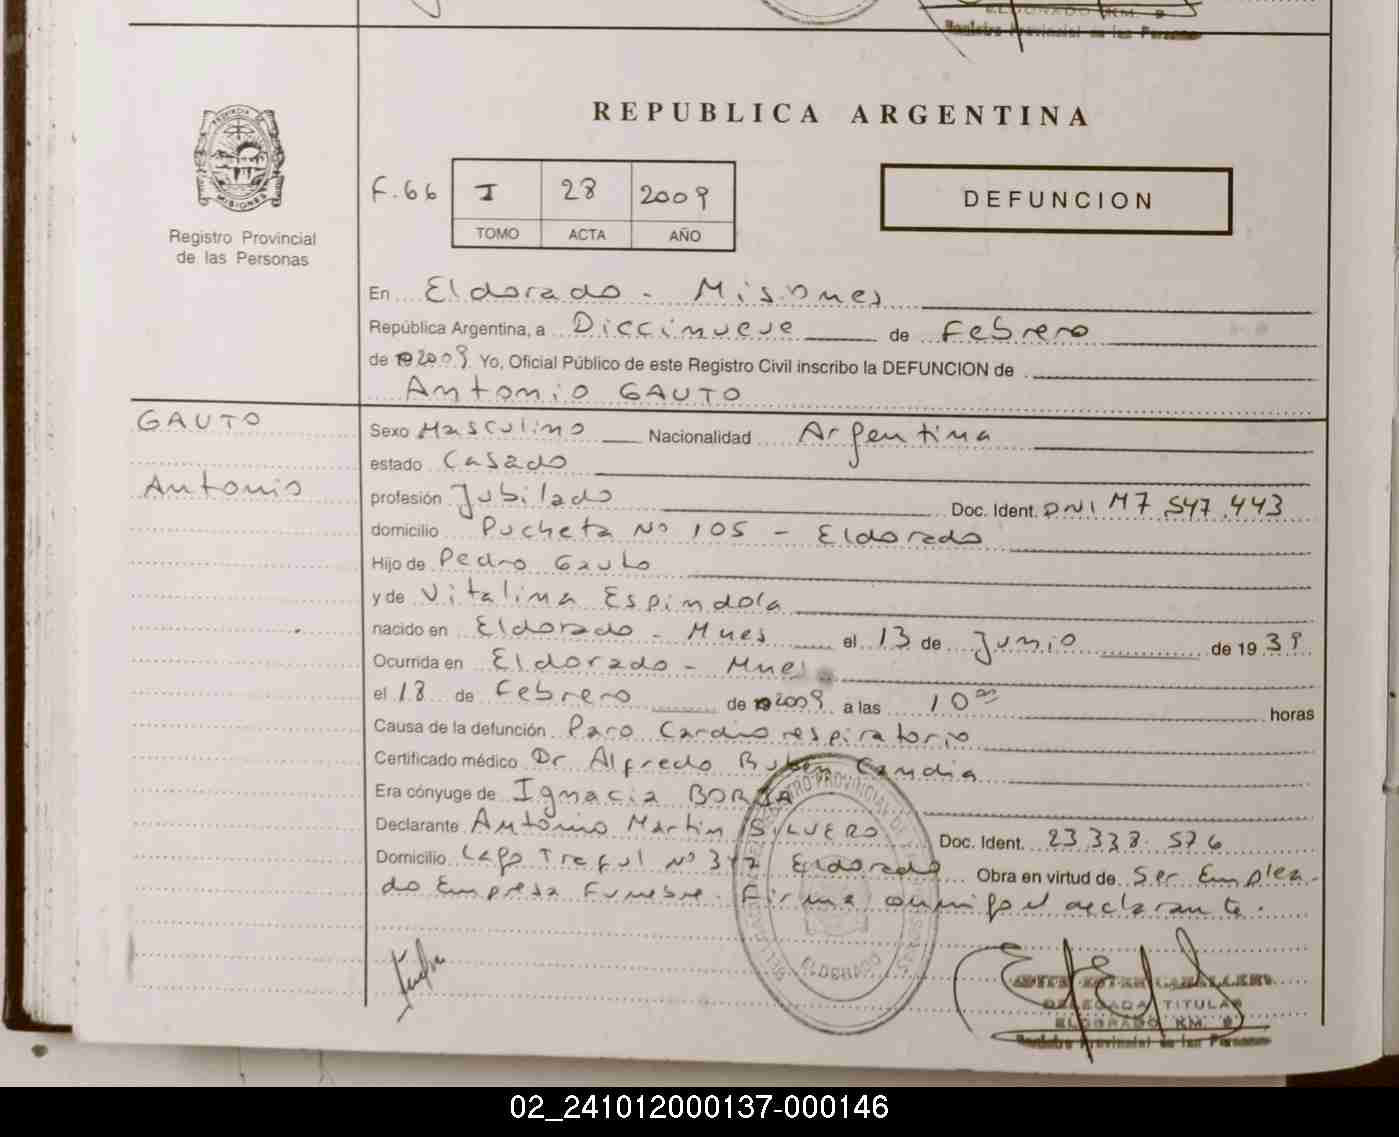 ELDORADO KM. 9
Registro Provincial de las Personas
PROVINCIA DE
MISIONES
Registro Provincial
de las Personas
REPUBLICA ARGENTINA
F.66 I 28 2009
TOMO ACTA AÑO
DEFUNCION
En Eldorado - Misiones
República Argentina, a Diecinueve de Febrero
de 2009 Yo, Oficial Público de este Registro Civil inscribo la DEFUNCION de
Antonio GAUTO
GAUTO
Antonio
Sexo Masculino Nacionalidad Argentina
estado Casado
profesión Jubilado Doc. Ident. DNI M7.547.443
domicilio Pucheta Nº 105 - Eldorado
Hijo de Pedro Gauto
y de Vitalina Espindola
nacido en Eldorado - Mnes el 13 de Junio de 1939
Ocurrida en Eldorado - Mnes
el 18 de Febrero de 2009 a las 10 horas
Causa de la defunción Paro Cardiorespiratorio
Certificado médico Dr Alfredo Ruben Candia
Era cónyuge de Ignacia BORJA
Declarante Antonio Martin SILVERO Doc. Ident. 23.338.576
Domicilio Lago Traful Nº Eldorado Obra en virtud de Ser Emplea-
do Empresa Funebre. Firma conmigo el declarante.
REGISTRO PROVINCIAL DE LAS PERSONAS
ELDORADO
DELEGADA TITULAR
ELDORADO KM. 9
Registro Provincial de las Personas
02_241012000137-000146